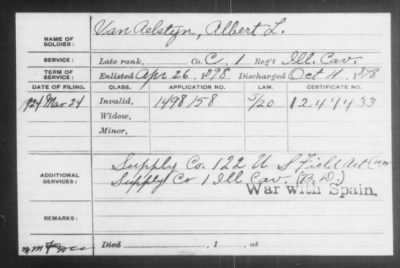 NAME OF SOLDIER: Van Aelstyn, Albert L.
SERVICE: Late rank, Co. C, 1 Reg't Ill. Cav.
TERM OF SERVICE: Enlisted Apr 26, 1898 Discharged Oct 11, 1898
DATE OF FILING. CLASS. APPLICATION NO. LAW. CERTIFICATE NO.
1924 Mar 24 Invalid, 1498158 1244433
Widow,
Minor,
ADDITIONAL SERVICES: Supply Co. 122 U S Field Art
Supply Co 1 Ill Cav.
War with Spain.
REMARKS:
Died , 1 , at